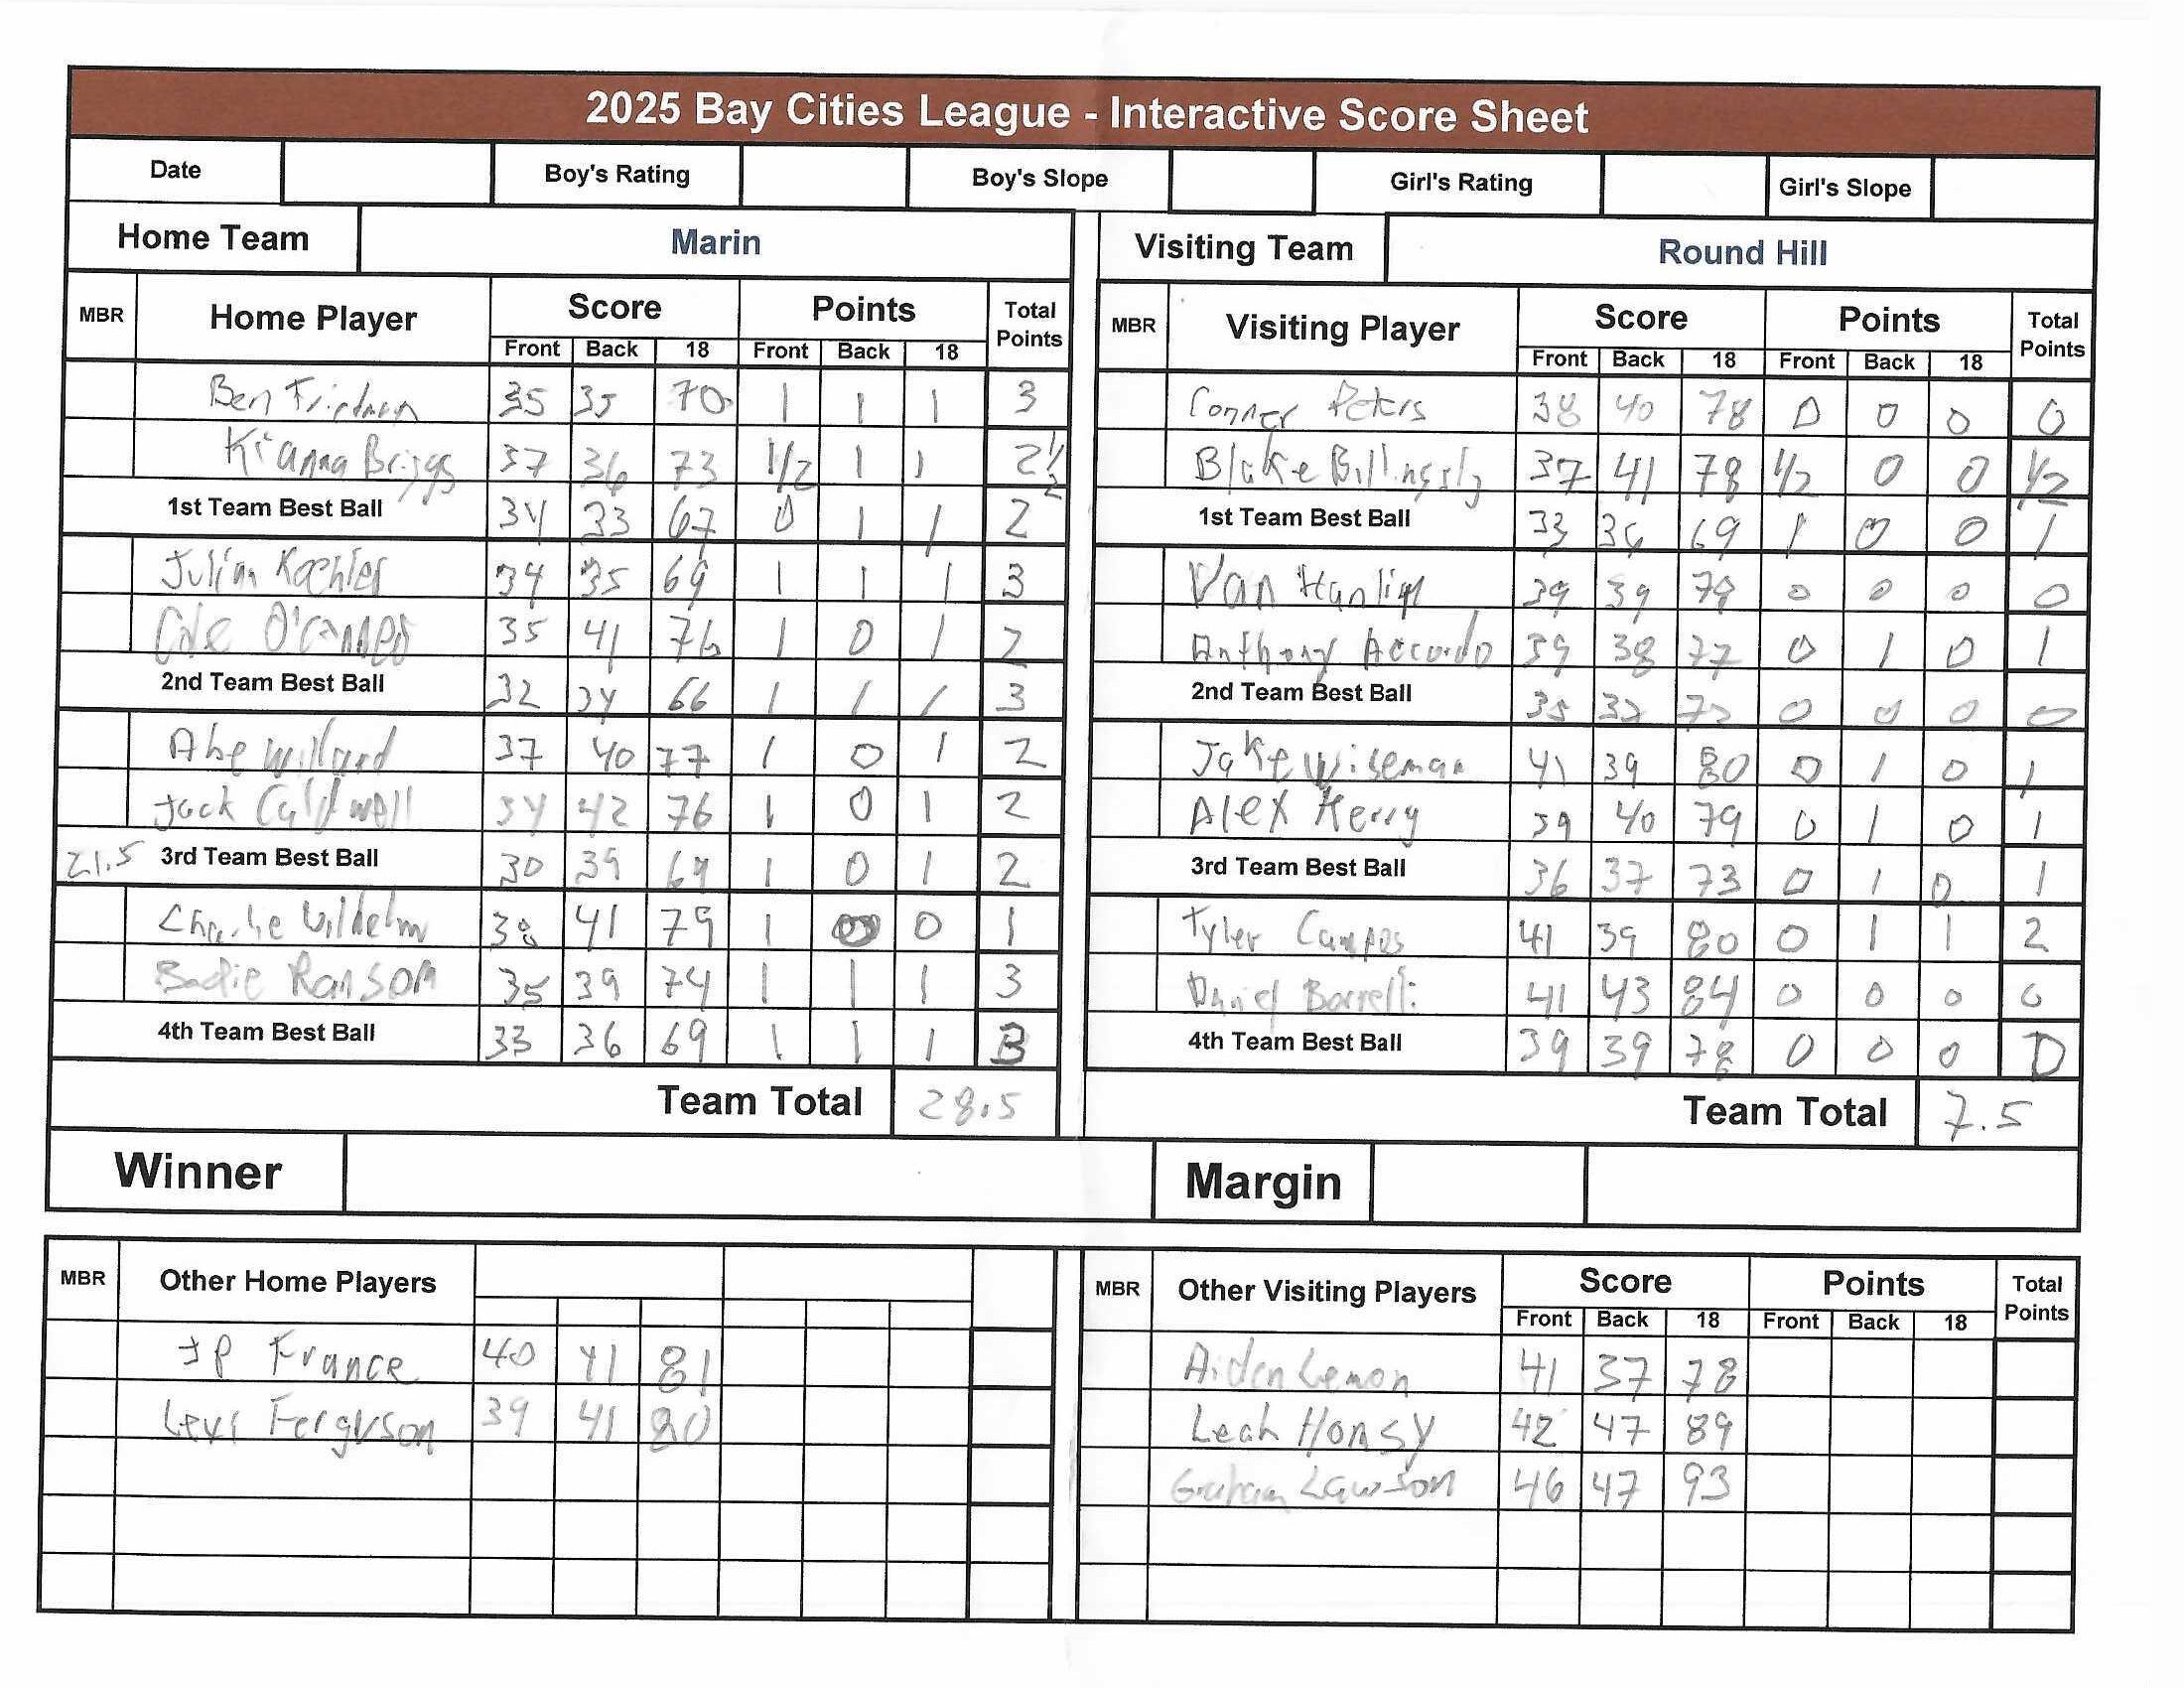 2025 Bay Cities League - Interactive Score Sheet
Date Boy's Rating Boy's Slope Girl's Rating Girl's Slope
Home Team Marin Visiting Team Round Hill
MBR Home Player Score Points Total Points MBR Visiting Player Score Points Total Points
Front Back 18 Front Back 18 Front Back 18 Front Back 18
Ben 35 35 70 1 1 1 3 Conner Peters 38 40 78 0 0 0 0
Kianna Briggs 37 36 73 1/2 1 1 2 1/2 Blake Billingsly 37 41 78 1/2 0 0 1/2
1st Team Best Ball 34 33 67 0 1 1 2 1st Team Best Ball 33 36 69 1 0 0 1
Julian Koehler 34 35 69 1 1 1 3 Van 39 39 78 0 0 0 0
Cole 35 41 76 1 0 1 2 Anthony Accardo 39 38 77 0 1 0 1
2nd Team Best Ball 32 34 66 1 1 1 3 2nd Team Best Ball 35 0 0 0 0
Abe Willard 37 40 77 1 0 1 2 Jake Wiseman 41 39 80 0 1 0 1
Jack Caldwell 34 42 76 1 0 1 2 Alex Kerry 39 40 79 0 1 0 1
21.5 3rd Team Best Ball 30 39 69 1 0 1 2 3rd Team Best Ball 36 37 73 0 1 0 1
Charlie Wilhelm 38 41 79 1 0 0 1 Tyler Campos 41 39 80 0 1 1 2
Ransom 35 39 74 1 1 1 3 Daniel Borrelli 41 43 84 0 0 0 0
4th Team Best Ball 33 36 69 1 1 1 3 4th Team Best Ball 39 39 78 0 0 0 0
Team Total 28.5 Team Total 7.5
Winner Margin
MBR Other Home Players MBR Other Visiting Players Score Points Total Points
Front Back 18 Front Back 18
JP France 40 41 81 Aiden Lemon 41 37 78
Levi Ferguson 39 41 80 Leah Honsy 42 47 89
Graham Lawson 46 47 93